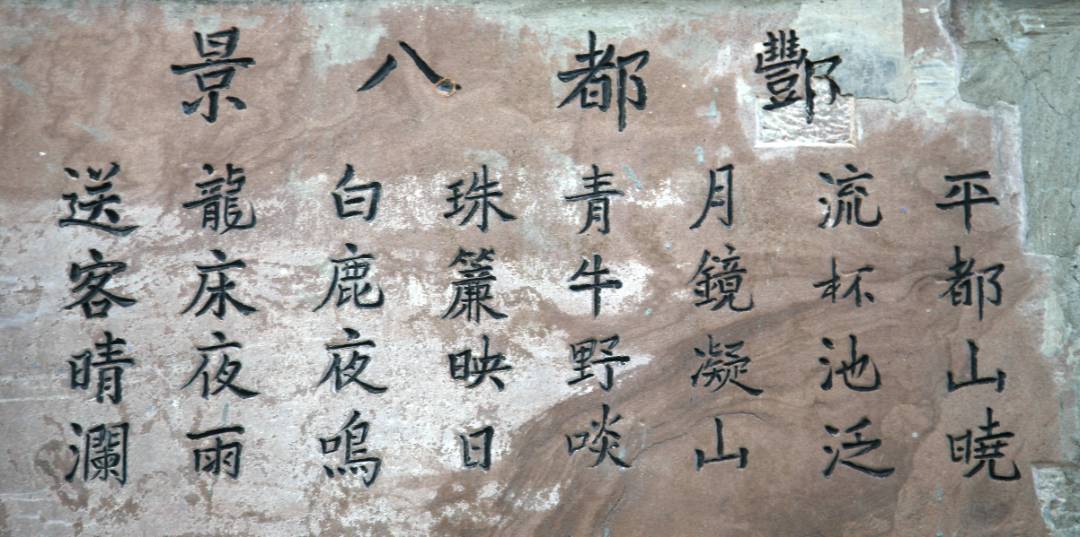 酆都八景
平都山曉
流杯池泛
月鏡凝山
青牛野啖
珠簾映日
白鹿夜鳴
龍床夜雨
送客晴瀾